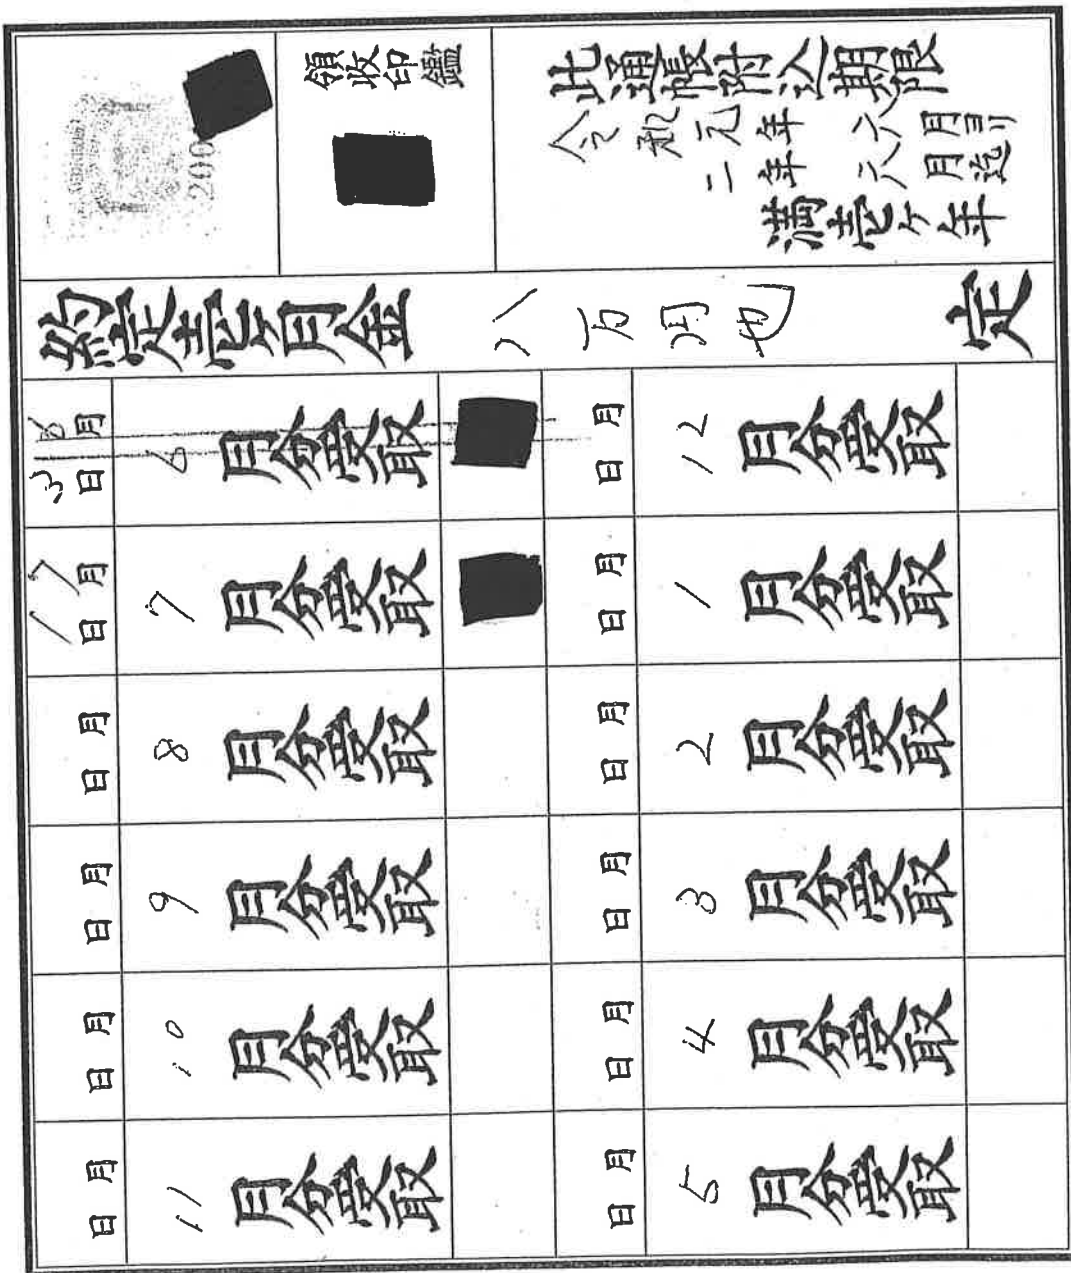 此通帳附込期限
令和元年六月ヨリ
二年六月迄
満壱ヶ年
領収印鑑
200
約定壱ヶ月金 八万円也 定
6月3日 6月分受取
7月1日 7月分受取
月 日 8月分受取
月 日 9月分受取
月 日 10月分受取
月 日 11月分受取
月 日 12月分受取
月 日 1月分受取
月 日 2月分受取
月 日 3月分受取
月 日 4月分受取
月 日 5月分受取